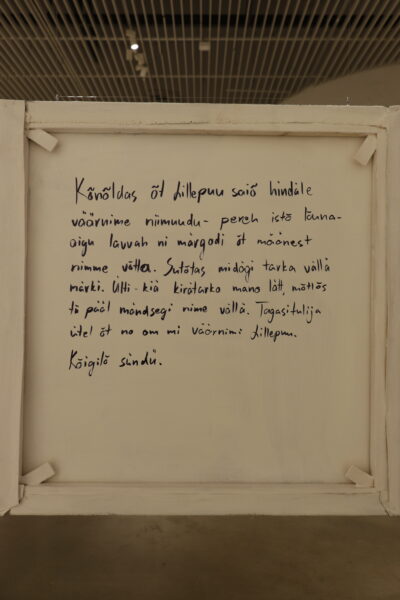 Kõnõldas õt Lillepuu saiõ hindäle
väärnime niimuudu - pereh istõ lõuna-
aigu lavvah ni märgodi õt määnest
nimme võtta. Sutõtas midägi tarka vällä
märki. Ütli - kiä kirätarko mano lätt, mõtlõs
tii pääl mändsegi nime vällä. Tagasitulija
ütel õt no om mi väärnimi Lillepuu.
Kõigilõ sündü.